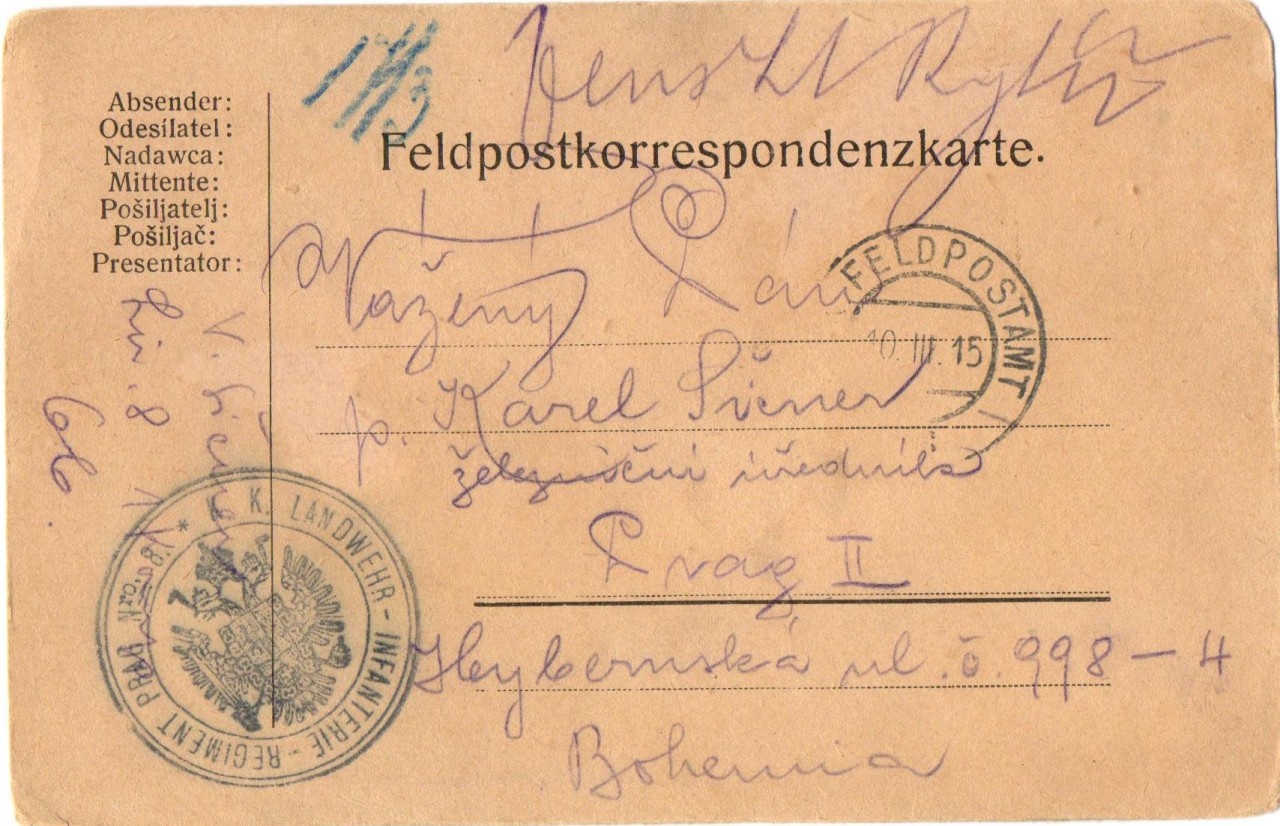 17/3
Absender:
Odesílatel:
Nadawca:
Mittente:
Pošiljatelj:
Pošiljač:
Presentator:
Feldpostkorrespondenzkarte.
Vážený Pán
p. Karel
železniční úředník
Prag II
Hybernská ul. č. 998 – 4
Bohemia
FELDPOSTAMT
10. III. 15
V.
8
K. K. LANDWEHR-INFANTERIE-REGIMENT PRAG Nro. 8. *